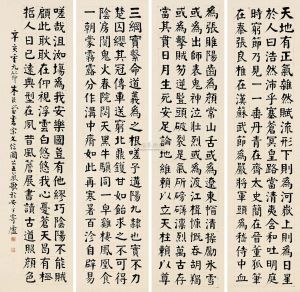 天地有正氣雜然賦流形下則為河嶽上則為日星
於人曰浩然沛乎塞蒼冥皇路當清夷含和吐明庭
時窮節乃見一一垂丹青在齊太史簡在晉董狐筆
在秦張良椎在漢蘇武節為嚴將軍頭為嵇侍中血
為張睢陽齒為顏常山舌或為遼東帽清操厲冰雪
或為出師表鬼神泣壯烈或為渡江楫慷慨吞胡羯
或為擊賊笏逆豎頭破裂是氣所磅礴凜烈萬古存
當其貫日月生死安足論地維賴以立天柱賴以尊
三綱實繫命道義為之根嗟予遘陽九隸也實不力
楚囚纓其冠傳車送窮北鼎鑊甘如飴求之不可得
陰房闃鬼火春院閟天黑牛驥同一皂雞棲鳳凰食
一朝蒙霧露分作溝中瘠如此再寒暑百沴自辟易
嗟哉沮洳場為我安樂國豈有他繆巧陰陽不能賊
顧此耿耿在仰視浮雲白悠悠我心憂蒼天曷有極
哲人日已遠典型在夙昔風簷展書讀古道照顏色
辛亥年九月朱書宋文信國正氣歌